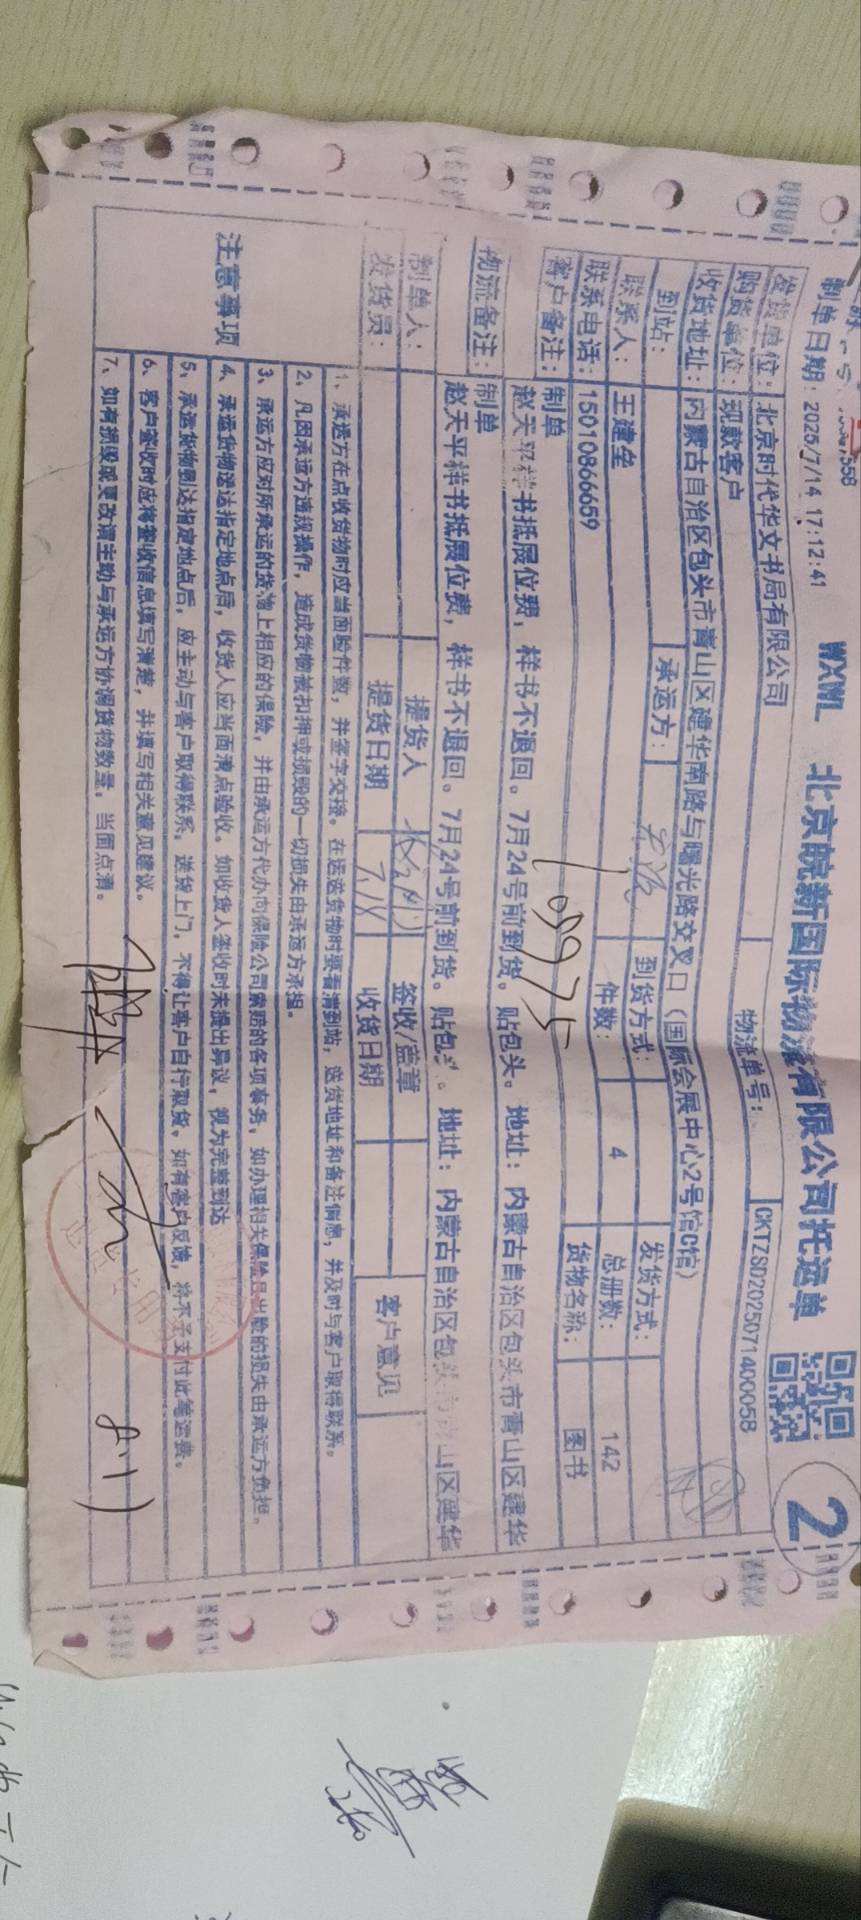 WXWL 北京皖新国际物流有限公司托运单
2
制单日期：2025/7/14 17:12:41
物流单号： CKTZSD20250714000058
发货单位：北京时代华文书局有限公司
购货单位：现款客户
收货地址：内蒙古自治区包头市青山区建华南路与曙光路交叉口（国际会展中心2号馆C馆）
到站： 承运方： 到货方式： 发货方式：
联系人：王建垒 件数： 4 总册数： 142
联系电话：15010866659 货物名称： 图书
108975
客户备注：制单
赵天平样书抵展位费，样书不退回。7月24号前到货。贴包头。地址：内蒙古自治区包头市青山区建华
物流备注：制单
赵天平样书抵展位费，样书不退回。7月24号前到货。贴包头。地址：内蒙古自治区包头市青山区建华
制单人： 提货人 签收/盖章 客户意见
发货员： 提货日期 7.18 收货日期
注意事项
1、承运方在点收货物时应当面验件数，并签字交接。在运送货物时要看清到站，送货地址和备注信息，并及时与客户取得联系。
2、凡因承运方违规操作，造成货物被扣押或损毁的一切损失由承运方承担。
3、承运方应对所承运的货物上相应的保险，并由承运方代办向保险公司索赔的各项事务。如办理相关保险且出险的损失由承运方负担。
4、承运货物送达指定地点后，收货人应当面清点验收。如收货人签收时未提出异议，视为完整到达
5、承运货物到达指定地点后，应主动与客户取得联系，送货上门，不得让客户自行取货。如有客户反馈，将不予支付此笔运费。
6、客户签收时应将签收信息填写清楚，并填写相关意见建议。
7、如有损毁或更改请主动与承运方协调货物数量。当面点清。